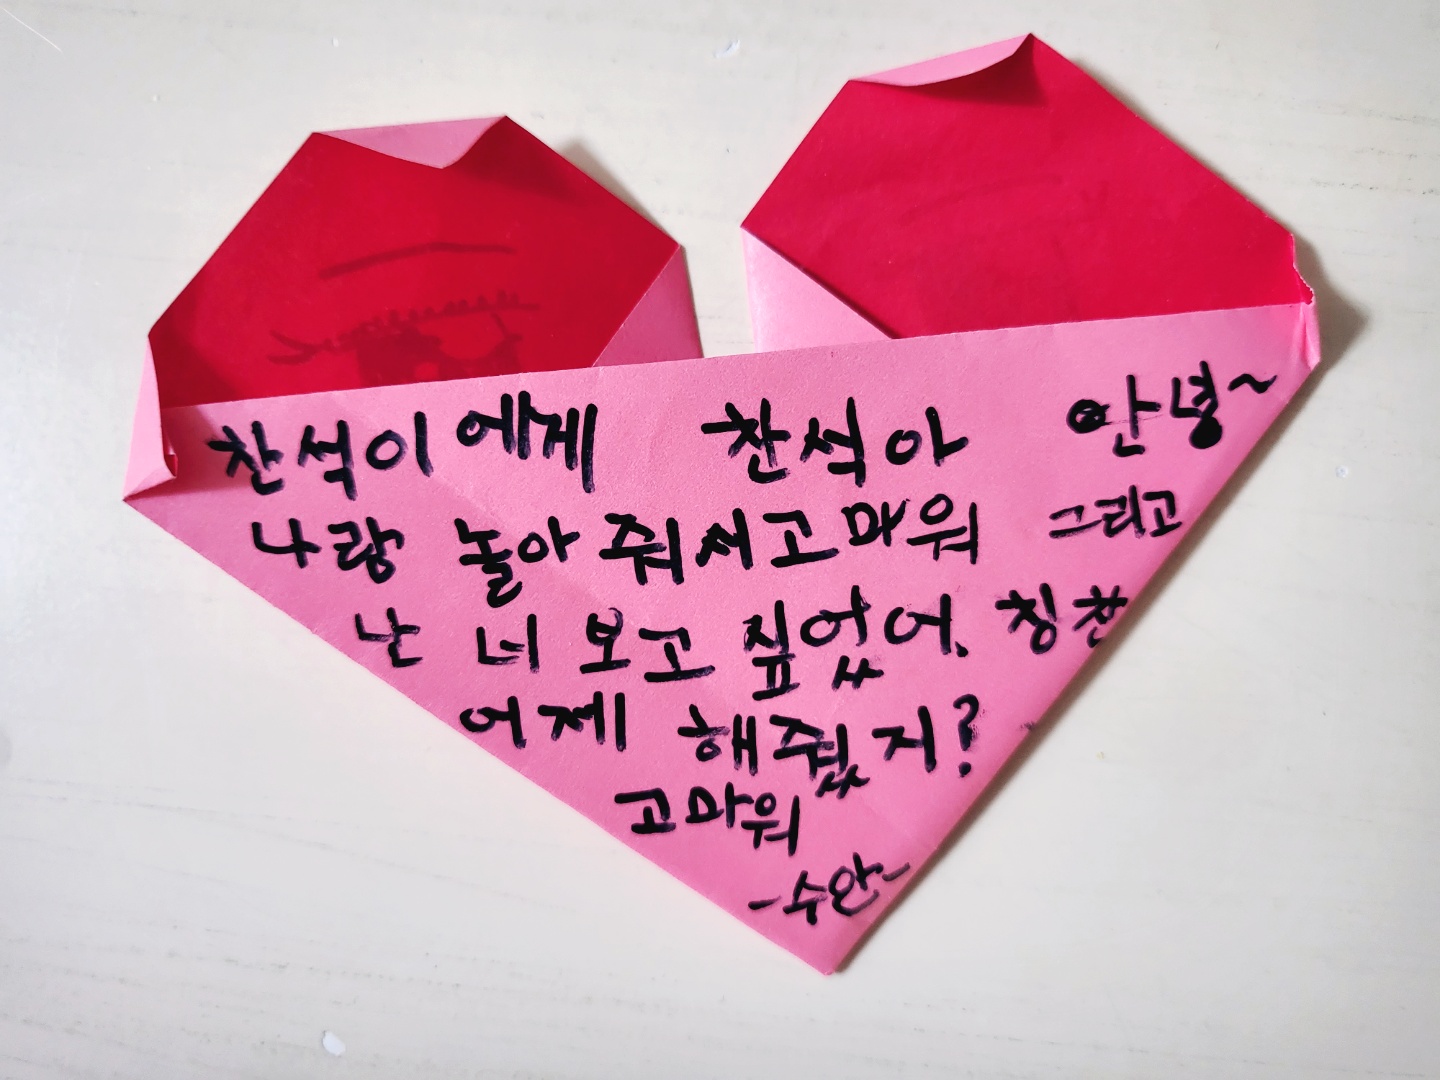 찬석이에게 찬석아 안녕~
나랑 놀아 줘서고마워 그리고
난 너 보고 싶었어. 칭찬
어제 해줬지?
고마워
-수안-